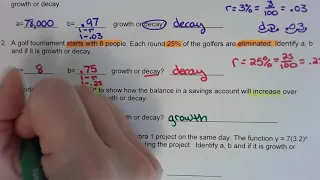 growth or decay?
a= 78,000 b= .97 growth or decay? decay r=3%= 3/100 = .03
1-r
1-.03
2 A golf tournament starts with 8 people. Each round 25% of the golfers are eliminated. Identify a, b
and if it is growth or decay.
= 8 b= .75 growth or decay? decay r=25%= 25/100 = .25
1-r
1-.25
to show how the balance in a savings account will increase over
growth or decay.
growth or decay? growth
bra 1 project on the same day. The function y = 7(3.2)ˣ
ting the project. Identify a, b and if it is growth or